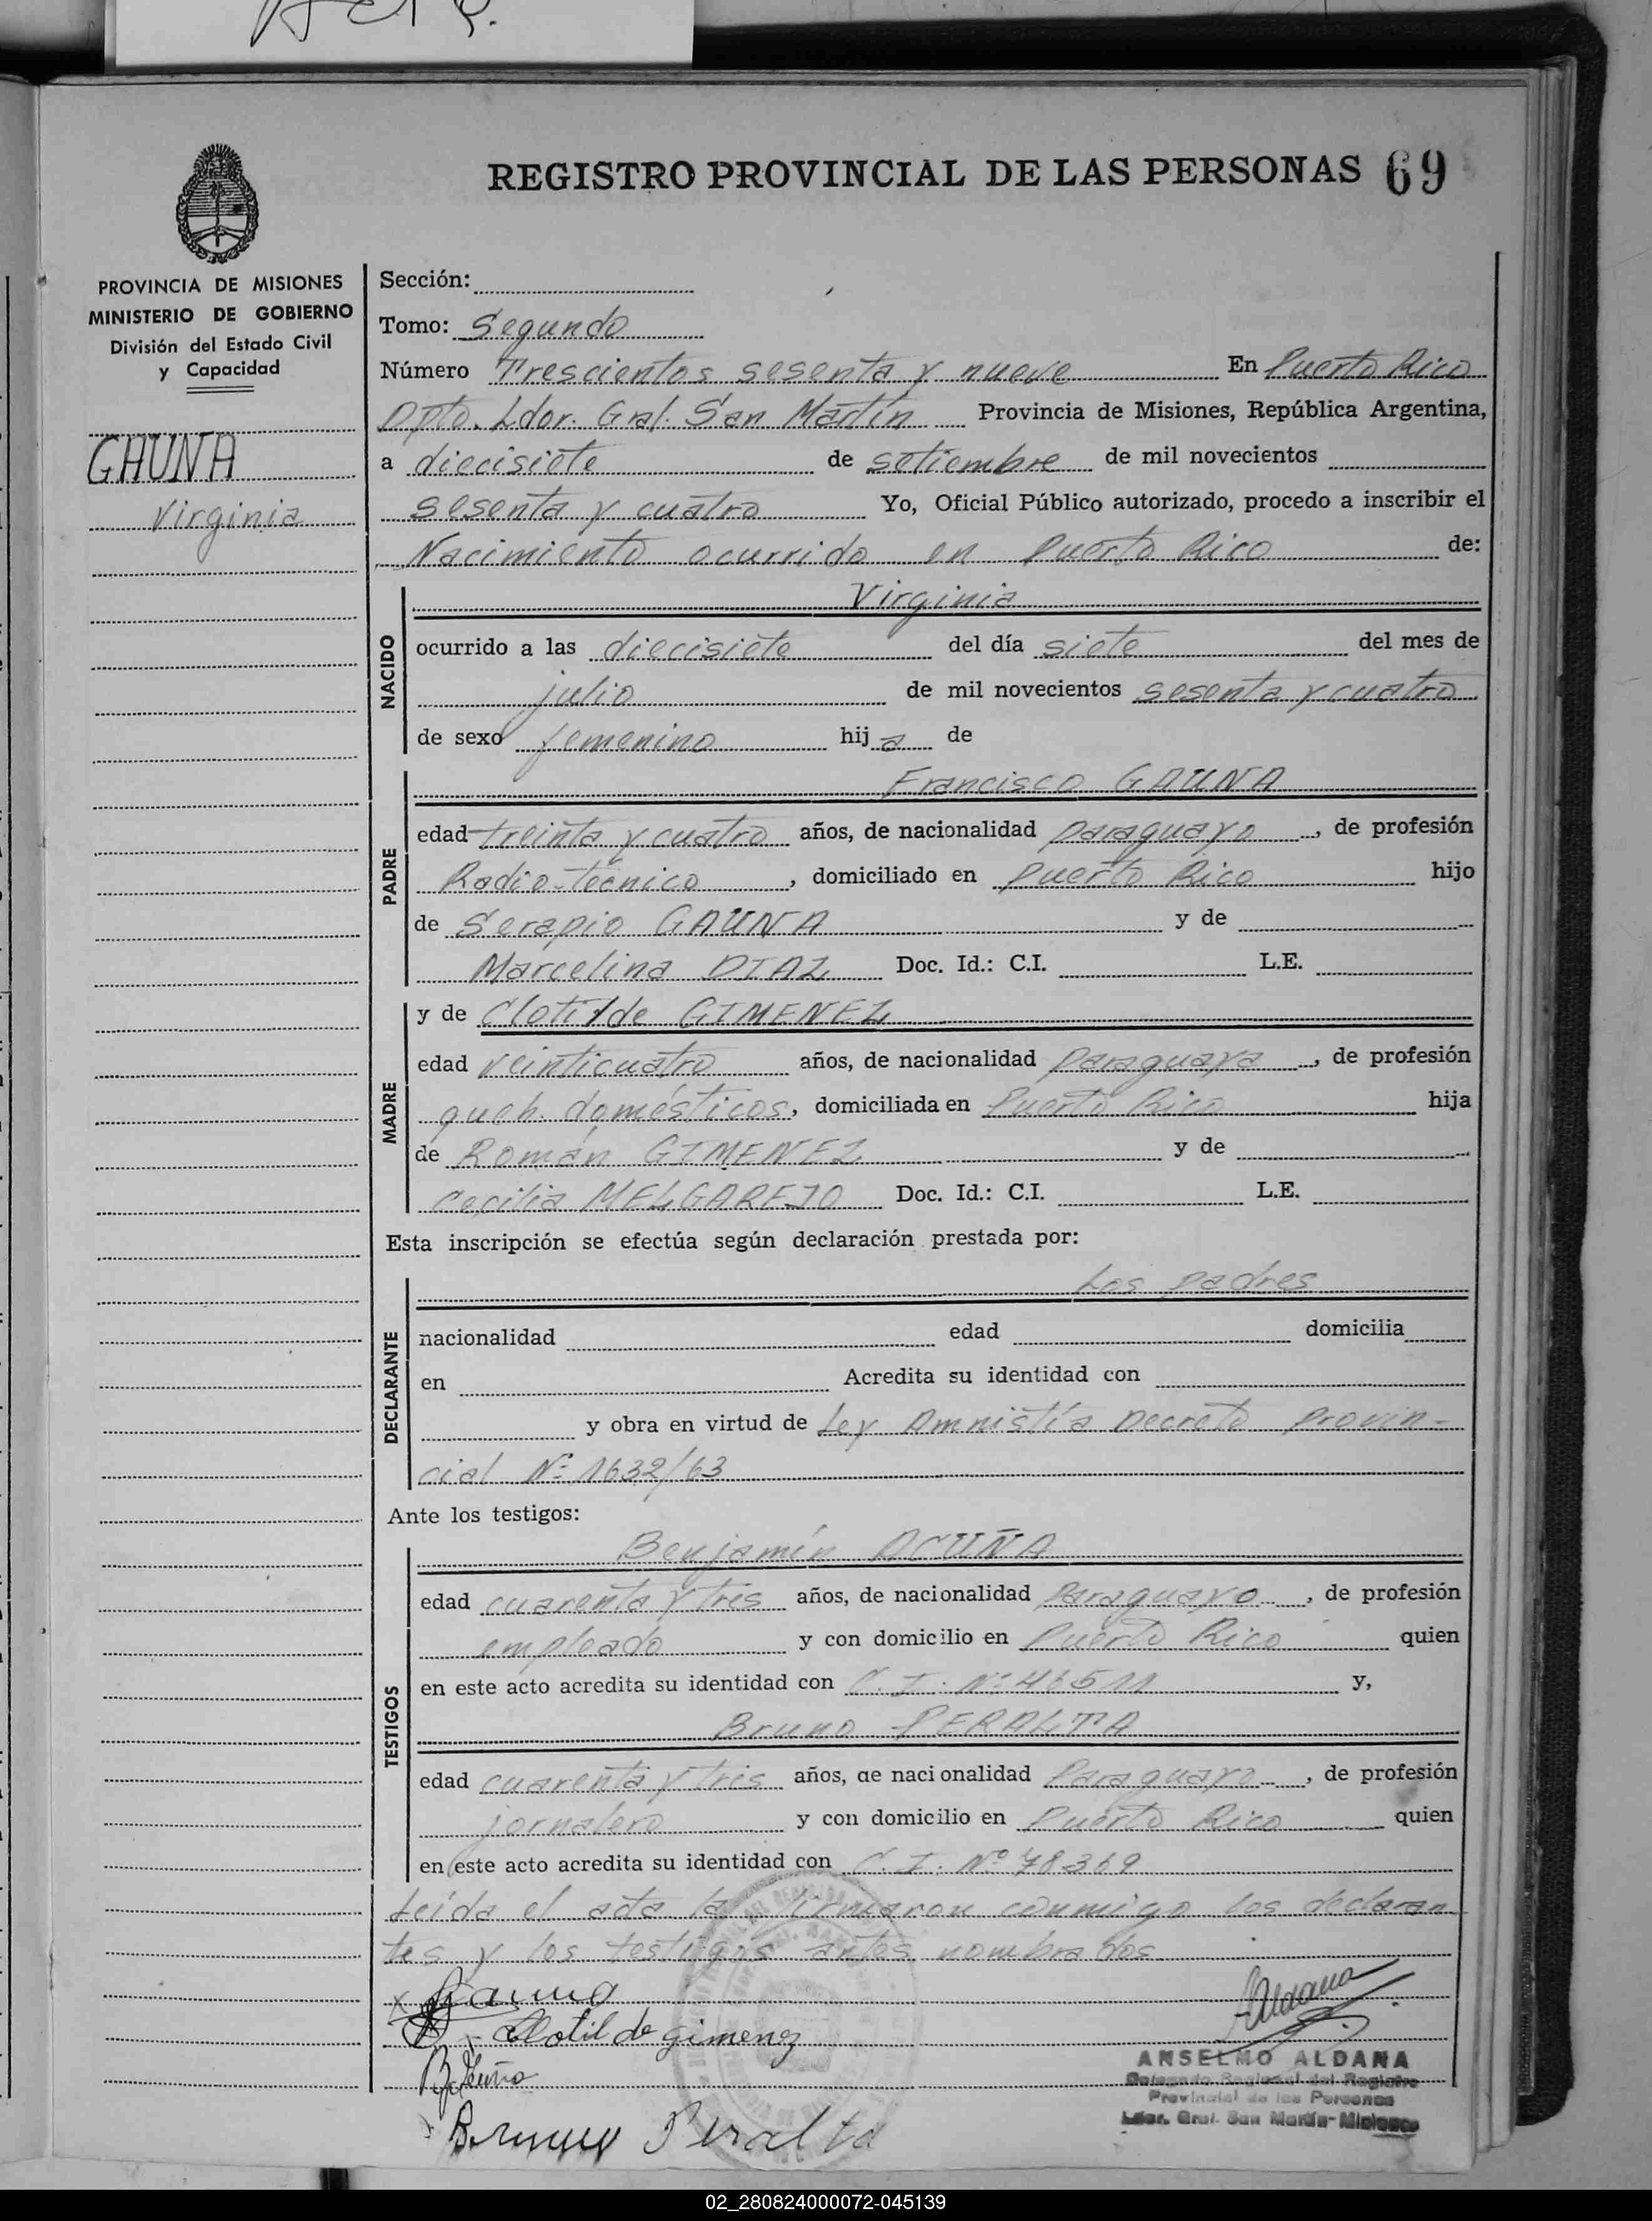 REGISTRO PROVINCIAL DE LAS PERSONAS 69
PROVINCIA DE MISIONES
MINISTERIO DE GOBIERNO
División del Estado Civil
y Capacidad
GAUNA
Virginia
Sección:
Tomo: Segundo
Número Trescientos sesenta y nueve En Puerto Rico
Dpto. Ldor. Gral. San Martín Provincia de Misiones, República Argentina,
a diecisiete de setiembre de mil novecientos
sesenta y cuatro Yo, Oficial Público autorizado, procedo a inscribir el
Nacimiento ocurrido en Puerto Rico de:
NACIDO
Virginia
ocurrido a las diecisiete del día siete del mes de
julio de mil novecientos sesenta y cuatro
de sexo femenino hija de
PADRE
Francisco GAUNA
edad treinta y cuatro años, de nacionalidad paraguayo, de profesión
Radio-técnico, domiciliado en Puerto Rico hijo
de Serapio GAUNA y de
Marcelina DIAZ Doc. Id.: C.I. L.E.
MADRE
y de Clotilde GIMENEZ
edad veinticuatro años, de nacionalidad paraguaya, de profesión
queh. domésticos, domiciliada en Puerto Rico hija
de Román GIMENEZ y de
Cecilia MELGAREJO Doc. Id.: C.I. L.E.
Esta inscripción se efectúa según declaración prestada por:
DECLARANTE
Los padres
nacionalidad edad domicilia
en Acredita su identidad con
y obra en virtud de Ley Amnistía Decreto Provin-
cial Nº 1632/63
Ante los testigos:
TESTIGOS
Benjamín ACUÑA
edad cuarenta y tres años, de nacionalidad Paraguayo, de profesión
empleado y con domicilio en Puerto Rico quien
en este acto acredita su identidad con C.I. Nº 46511 y,
Bruno PERALTA
edad cuarenta y tres años, de nacionalidad Paraguayo, de profesión
jornalero y con domicilio en Puerto Rico quien
en este acto acredita su identidad con C.I. Nº 78369
Leída el acta la firmaron conmigo los declaran
tes y los testigos antes nombrados
x Gauna
Clotilde gimenez
B. Acuña
Bruno Peralta
Aldana
ANSELMO ALDANA
Delegado Regional del Registro
Provincial de las Personas
Ldor. Gral. San Martín-Misiones
02_280824000072-045139